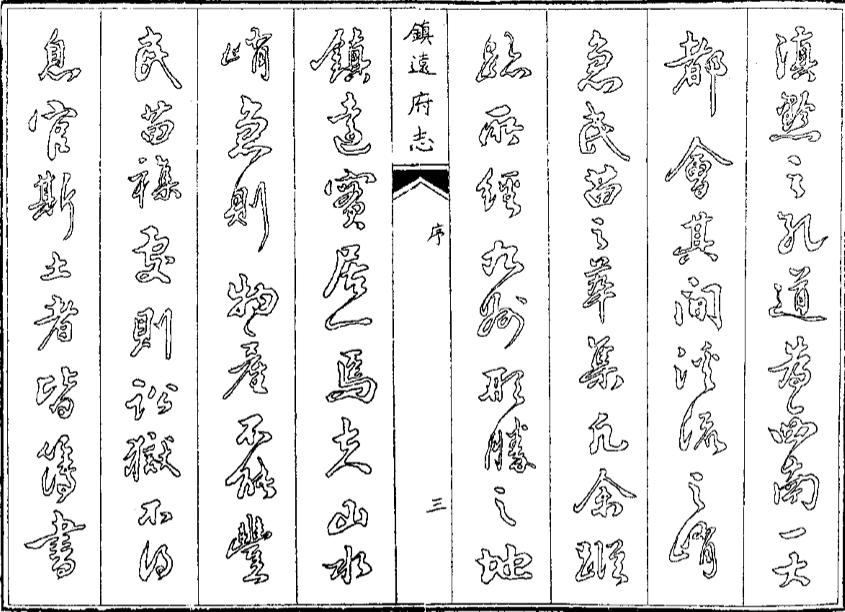 滇黔之孔道為西南一大
都會其間溪流之峭
急民苗之萃集凡余蹤
跡所經九州形勝之地
鎮遠府志
序
三
鎮遠實居一焉夫山水
峭急則物產不能豐
民苗襍處則訟獄不得
息官斯土者皆簿書